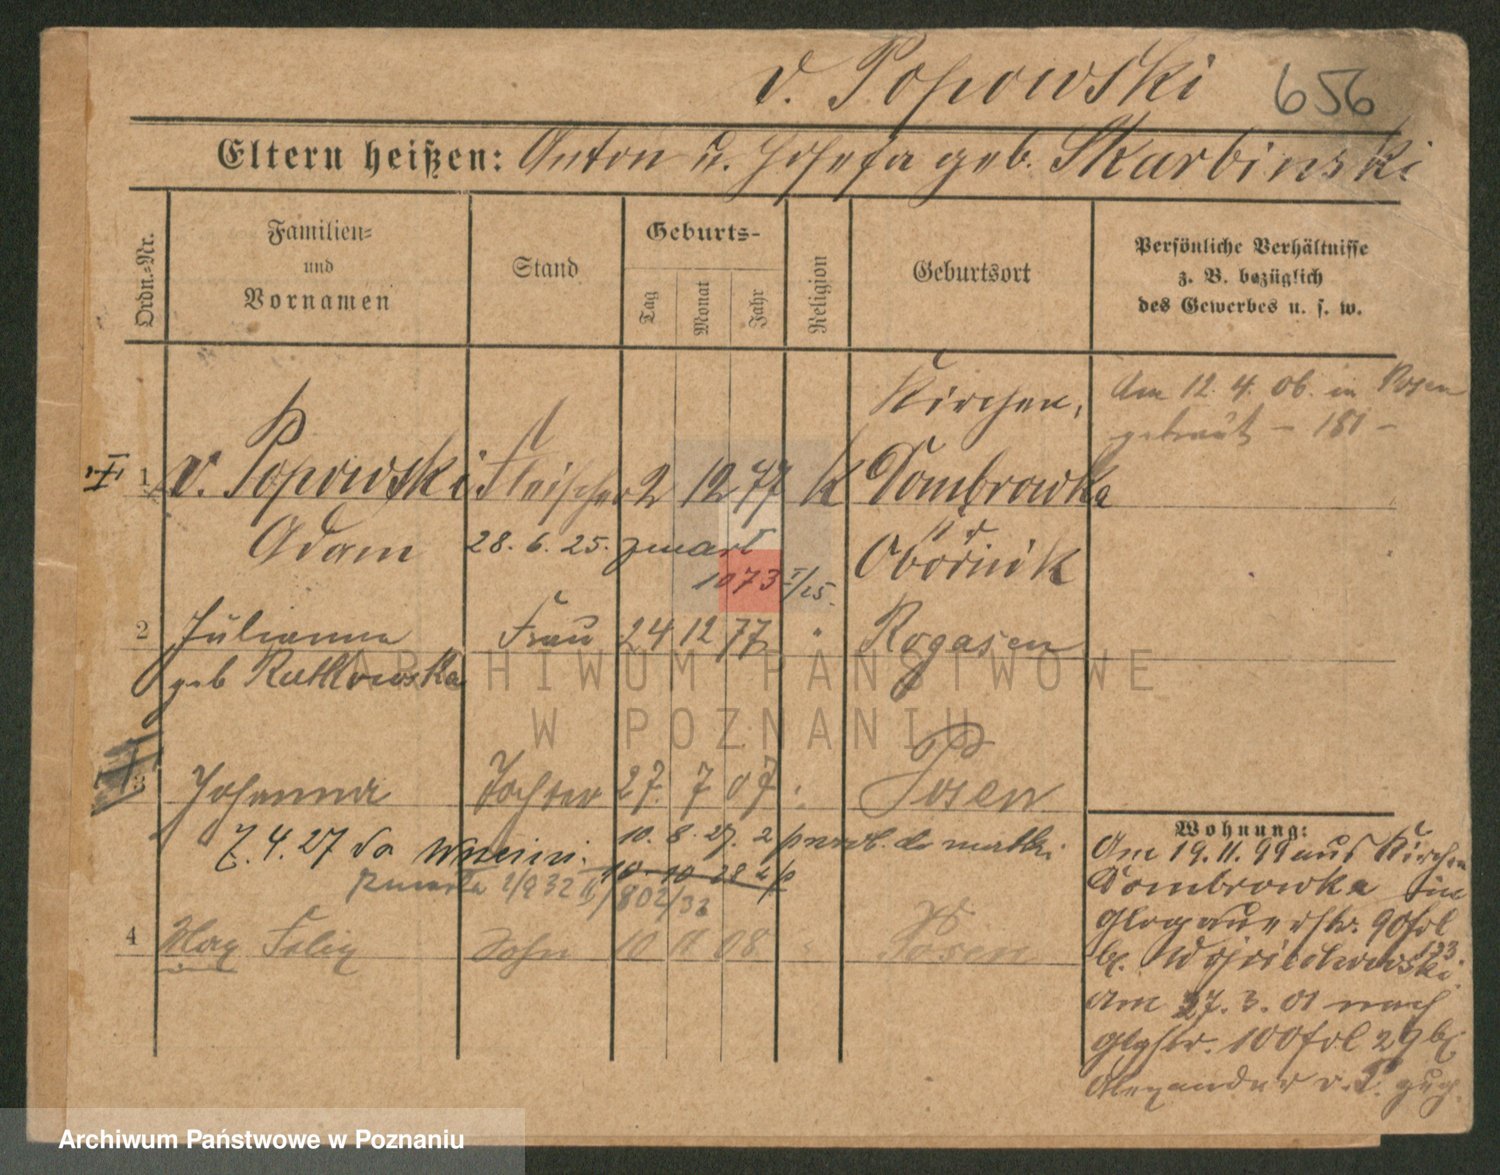 v. Popowski 656
Eltern heißen: Anton u. Josefa geb. Skarbinski
Ordn.-Nr.
Familien-
und
Vornamen
Stand
Geburts-
Tag
Monat
Jahr
Religion
Geburtsort
Persönliche Verhältnisse
z. B. bezüglich
des Gewerbes u. s. w.
Am 12. 4. 06. in Posen
getraut - 181 -
Kirchen,
1 v. Popowski Fleischer 2 12 77 K Dombrowka
Adam 28. 6. 25. zmarł Obornik
1073 I/25.
2 Julianna Frau 24 12 77 " Rogasen
geb Rutkowska
3 Johanna Tochter 27. 7 07 Posen
7. 4. 27 do 10. 8. 27. 2 powr. do matki
10 10 28
802/32
4 Felix Sohn 10 11 08 " Posen
Wohnung:
Am 19. 11. 99 aus Kirchen
Dombrowka
Glogauerstr. 90
b.
Am 27. 3. 01 nach
Glgstr. 100 29 b.
Alexander v. P. zug.
ARCHIWUM PAŃSTWOWE
W POZNANIU
Archiwum Państwowe w Poznaniu